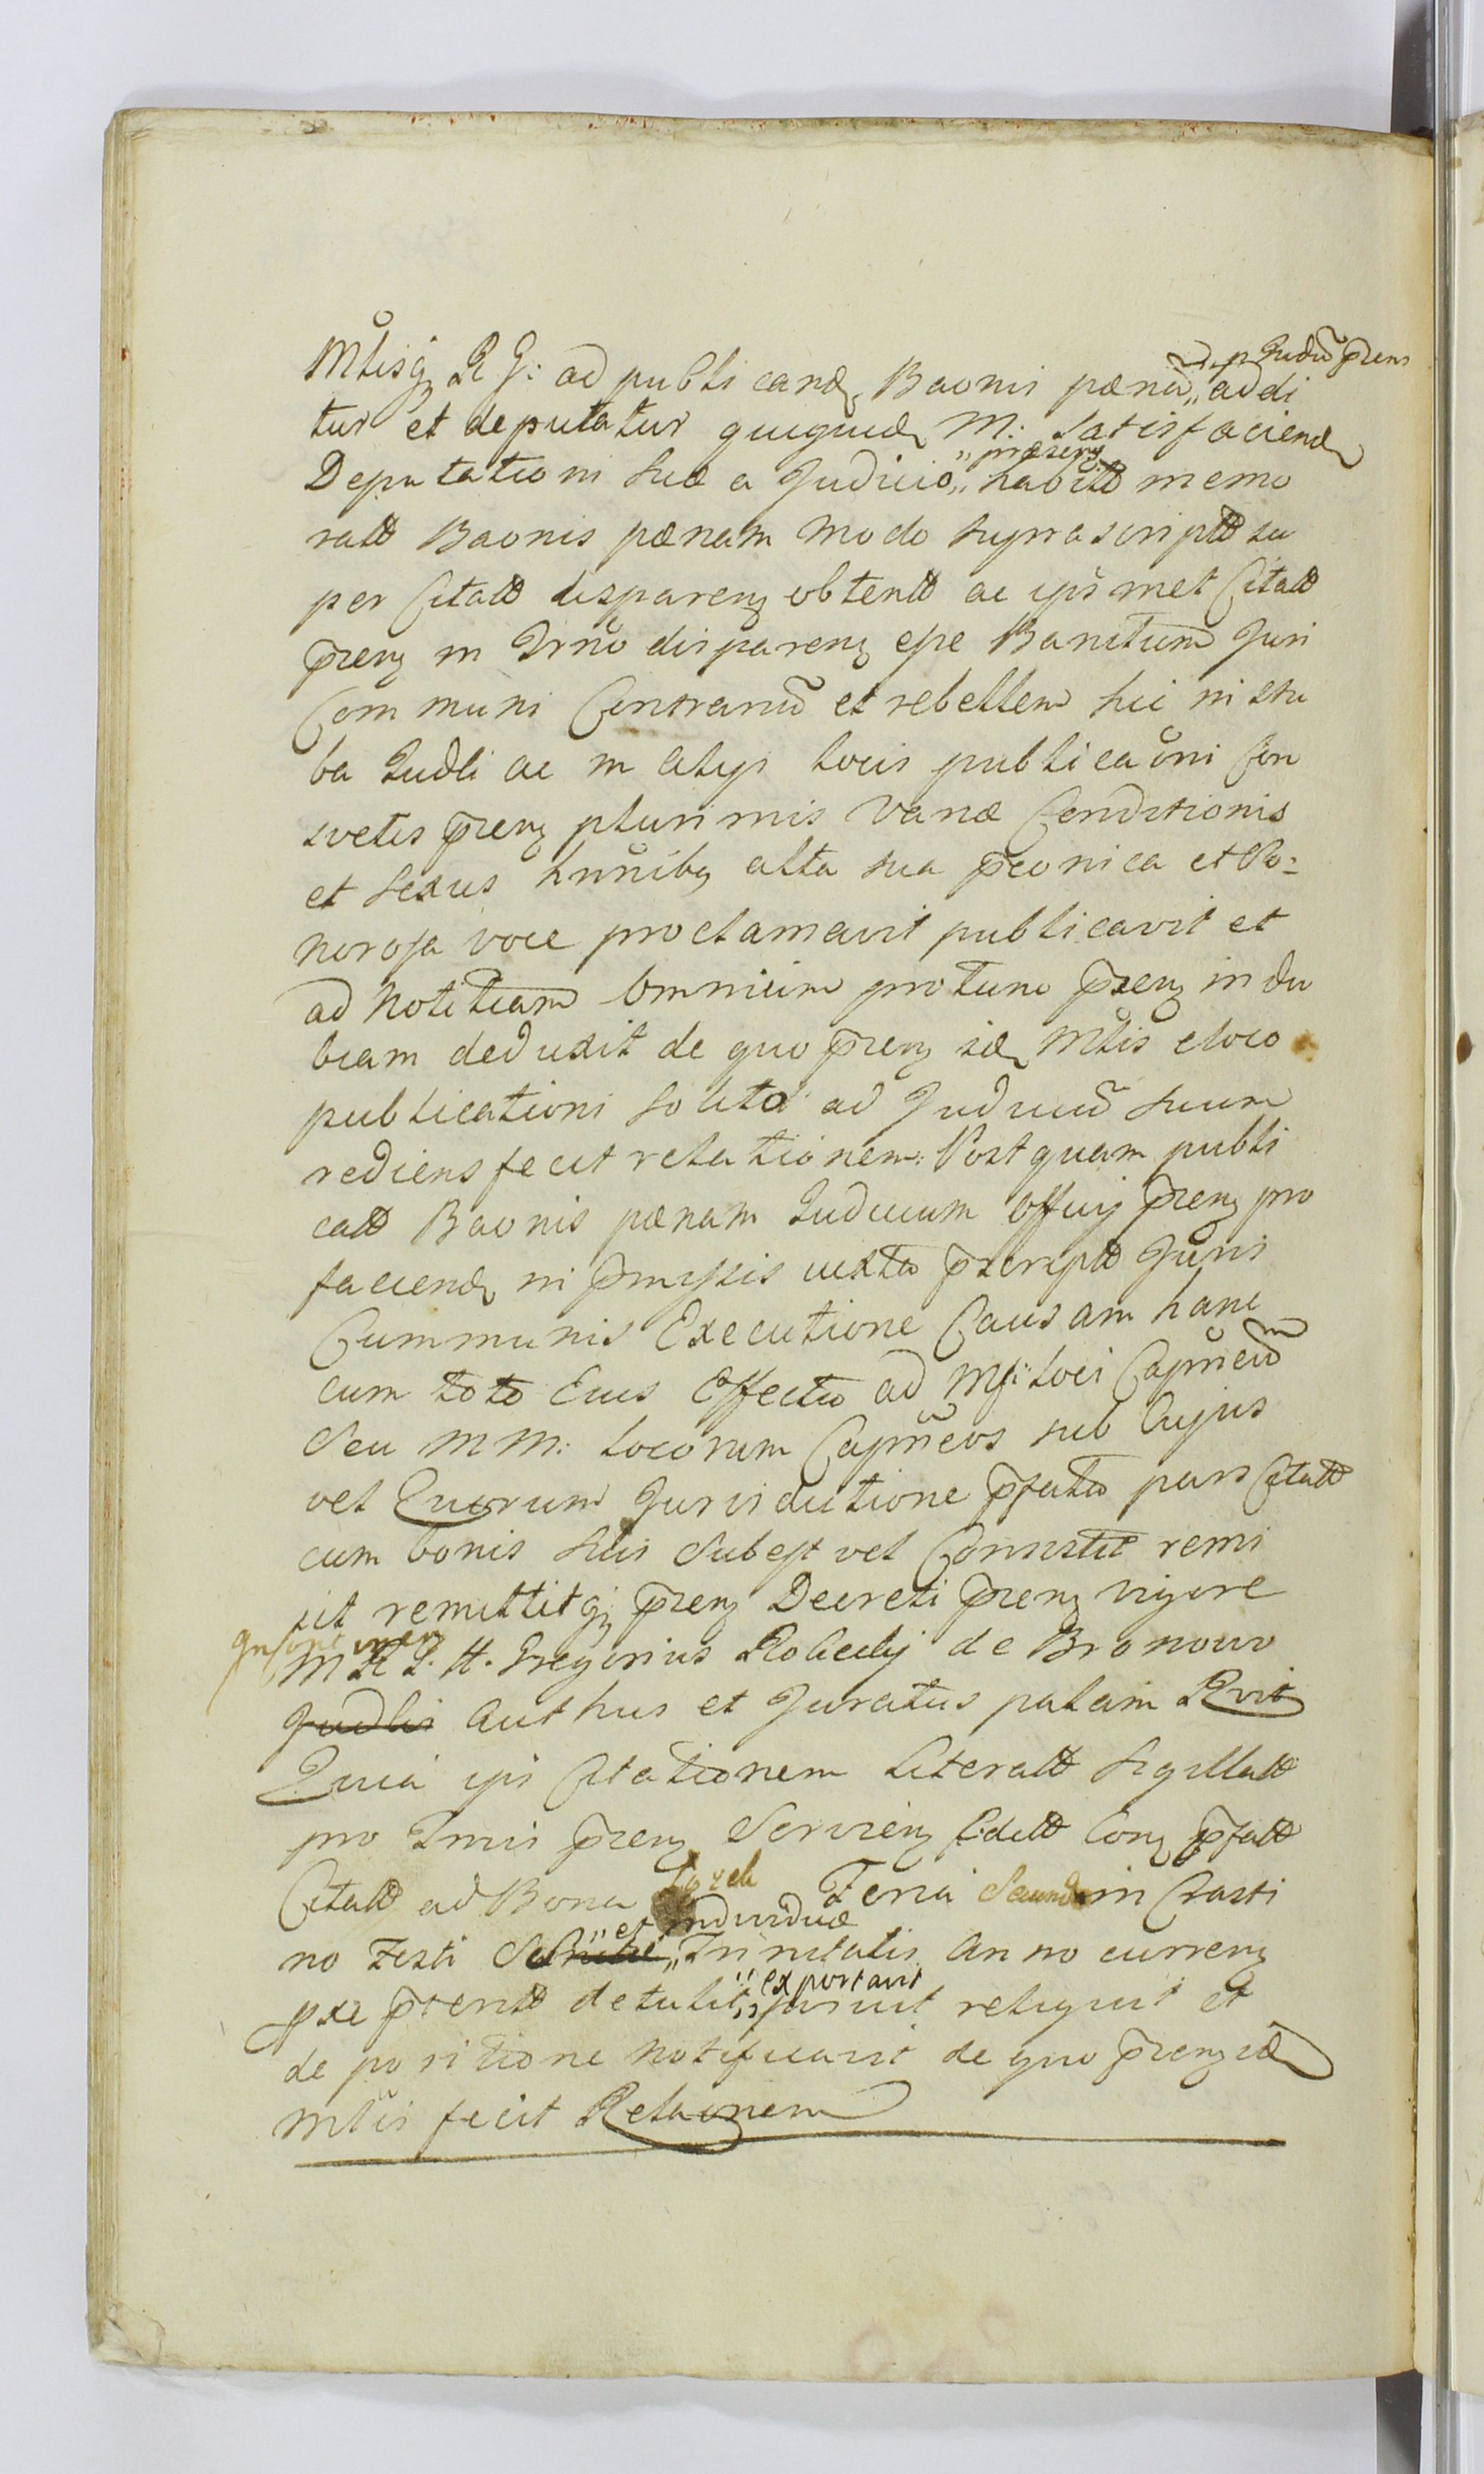 Mltisq R G: ad publicand Baonis pœna „ per Judm prens „ addi
tur et deputatur quiquid M: Satisfaciend
Deputationi suæ a Judicio „ præsenz „ habitt memo
ratt Baonis pœnam modo suprascriptt su
per Citatt disparenz obtentt ac ipsmet Citatt
prenz in Trno disparenz esse Banitum Juri
Communi Contrariũ et rebellem hic in stu
ba Judli ac in alijs locis publicaoni con
svetis prenz plurimis variæ Conditionis
et sexus hnnibq alta sua preonica et so-
norosa voce proclamavit publicavit et
ad notitiam omnium protunc prenz indu
biam deduxit de quo prenz id Mltis e loco
publicationi solito ad Judiciũ suum
rediens fecit relationem: Postquam publi
catt Baonis pœnam Judicium officij prenz pro
faciend in pmissis iuxta prscriptt Juris
Cummunis Executione Causam hanc
cum toto Eius Effectu ad Mfi: loci Capneum
seu M M: locorum Capneos sub Cujus
vel Quorum Jurisdictione pfata pars Citatt
cum bonis suis subest vel Consistit remi
sit remittitqz prenz Decreti prenz vigore
M R S. H. Gregorius Rolicely de Bronowo
Judlis authus et Juratus palam Rvit
Quia ipse Citationem literatt sigillatt
pro Trnis prenz Servienz Edditt conz pfatt
Citatt ad Bona Feria Secunda in Crasti
no Festi „ et individuæ „ Trinitatis Anno currenz
pxe prentt detulit „ exportavit „ posuit reliquit et
de positione notificavit de quo prenz id
Mltis fecit Relaonem